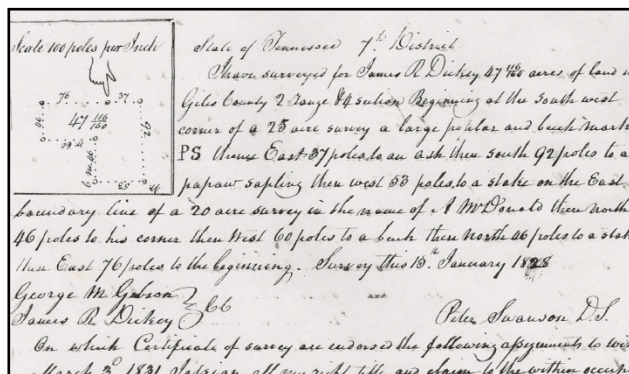 Scale 100 poles per Inch
76 37
47 116/160
46
92
46
53
State of Tennessee 7th District
I have surveyed for James R Dickey 47 acres of land in
Giles County 2 range & 4 section Beginning at the South west
corner of a 25 acre survey a large poplar and beech mark
PS thence East 37 poles to an ash then south 92 poles to a
papaw sapling then west 53 poles to a stake on the East
boundary line of a 20 acre survey in the name of A McDonald then north
46 poles to his corner then West 60 poles to a beech then North 46 poles to a stak
then East 76 poles to the beginning. Survey this 15th January 1828
George M Gibson
James R. Dickey } CC
Peter Swanson D.S.
On which Certificate of survey are endorsed the following assignments to wit
March 3d 1831 I assign all my right title and claim to the within